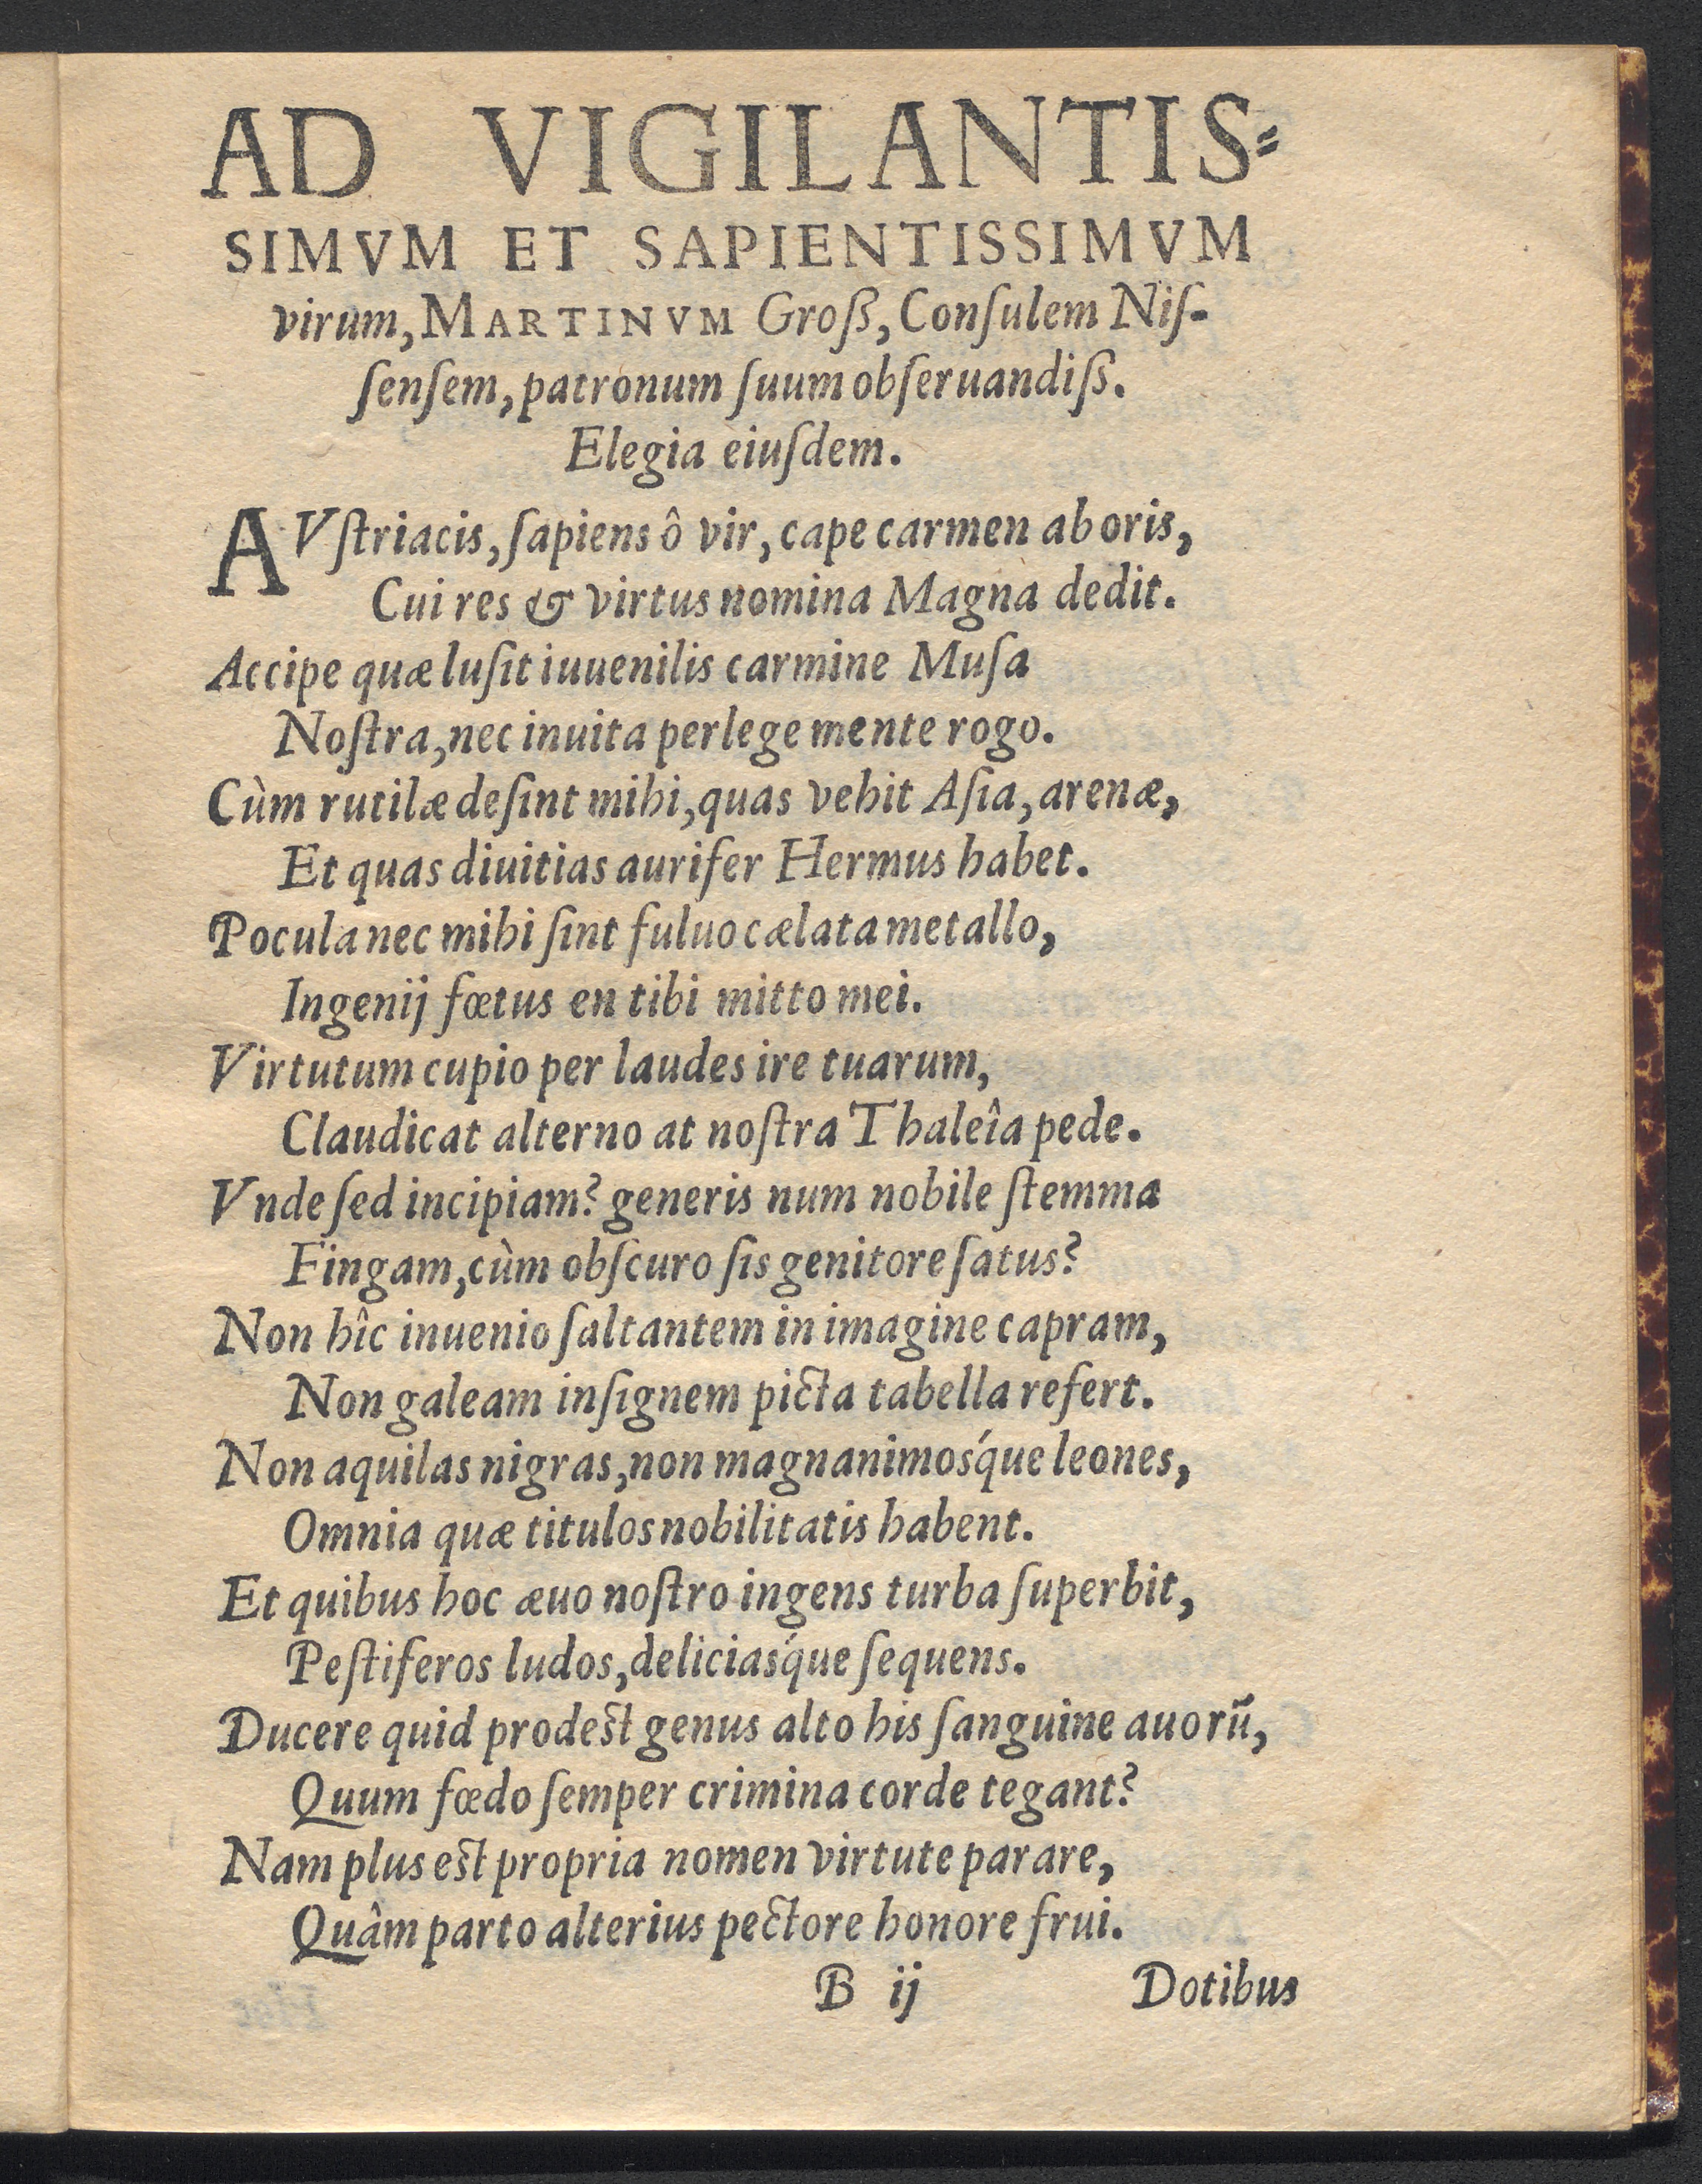 AD VIGILANTIS⸗
SIMVM ET SAPIENTISSIMVM
virum, MARTINVM Groſß, Conſulem Niſ-
ſenſem, patronum ſuum obſeruandiſß.
Elegia eiuſdem.
AVſtriacis, ſapiens ô vir, cape carmen ab oris,
Cui res & virtus nomina Magna dedit.
Accipe quæ luſit iuuenilis carmine Muſa
Noſtra, nec inuita perlege mente rogo.
Cùm rutilæ deſint mihi, quas vehit Aſia, arenæ,
Et quas diuitias aurifer Hermus habet.
Pocula nec mihi ſint fuluo cælata metallo,
Ingenij fœtus en tibi mitto mei.
Virtutum cupio per laudes ire tuarum,
Claudicat alterno at noſtra Thaleîa pede.
Vnde ſed incipiam? generis num nobile ſtemma
Fingam, cùm obſcuro ſis genitore ſatus?
Non hîc inuenio ſaltantem in imagine capram,
Non galeam inſignem picta tabella refert.
Non aquilas nigras, non magnanimosq́ue leones,
Omnia quæ titulos nobilitatis habent.
Et quibus hoc æuo noſtro ingens turba ſuperbit,
Peſtiferos ludos, deliciasq́ue ſequens.
Ducere quid prodest genus alto his ſanguine auorū,
Quum fœdo ſemper crimina corde tegant?
Nam plus est propria nomen virtute parare,
Quâm parto alterius pectore honore frui.
B ij Dotibus